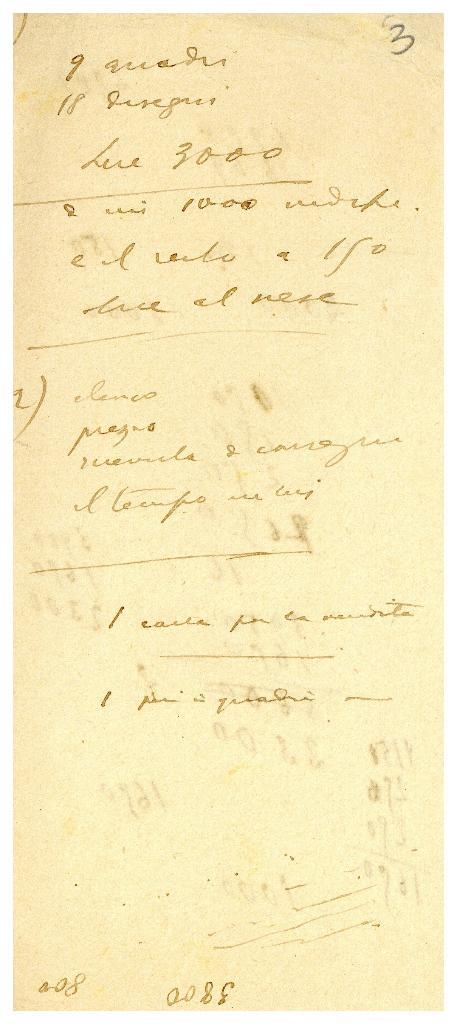 3
9 quadri
18 disegni
Lire 3000
1000
e il resto a 150
lire al mese
2) elenco
prezzo
ricevuta di consegna
il tempo in cui
1 carta per la vendita
1 per i quadri —
800 3800